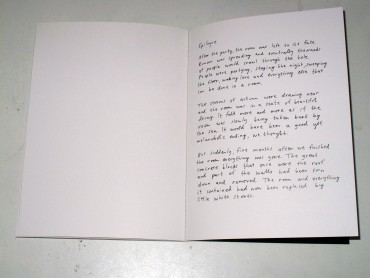 Epilogue
After the party, the room was left to its fate.
Rumour was spreading and eventually thousands
of people would crawl through the hole.
People were partying, staying the night, sweeping
the floor, making love and everything else that
can be done in a room.
The storms of autumn were drawing near
and the room was in a state of beautiful
decay. It felt more and more as if the
room was slowly being taken back by
the sea. It would have been a good yet
melancholic ending, we thought.
But suddenly, five months after we finished
the room everything was gone. The great
concrete blocks that once were the roof
and part of the walls had been torn
down and removed. The room and everything
it contained had now been replaced by
little white stones.